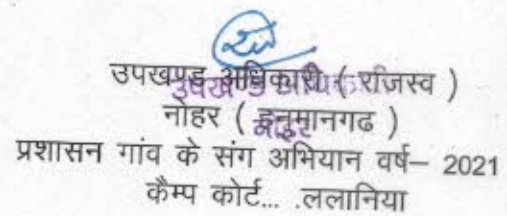 उपखण्ड अधिकारी ( राजस्व )
नोहर ( हनुमानगढ )
प्रशासन गांव के संग अभियान वर्ष– 2021
कैम्प कोर्ट... .ललानिया